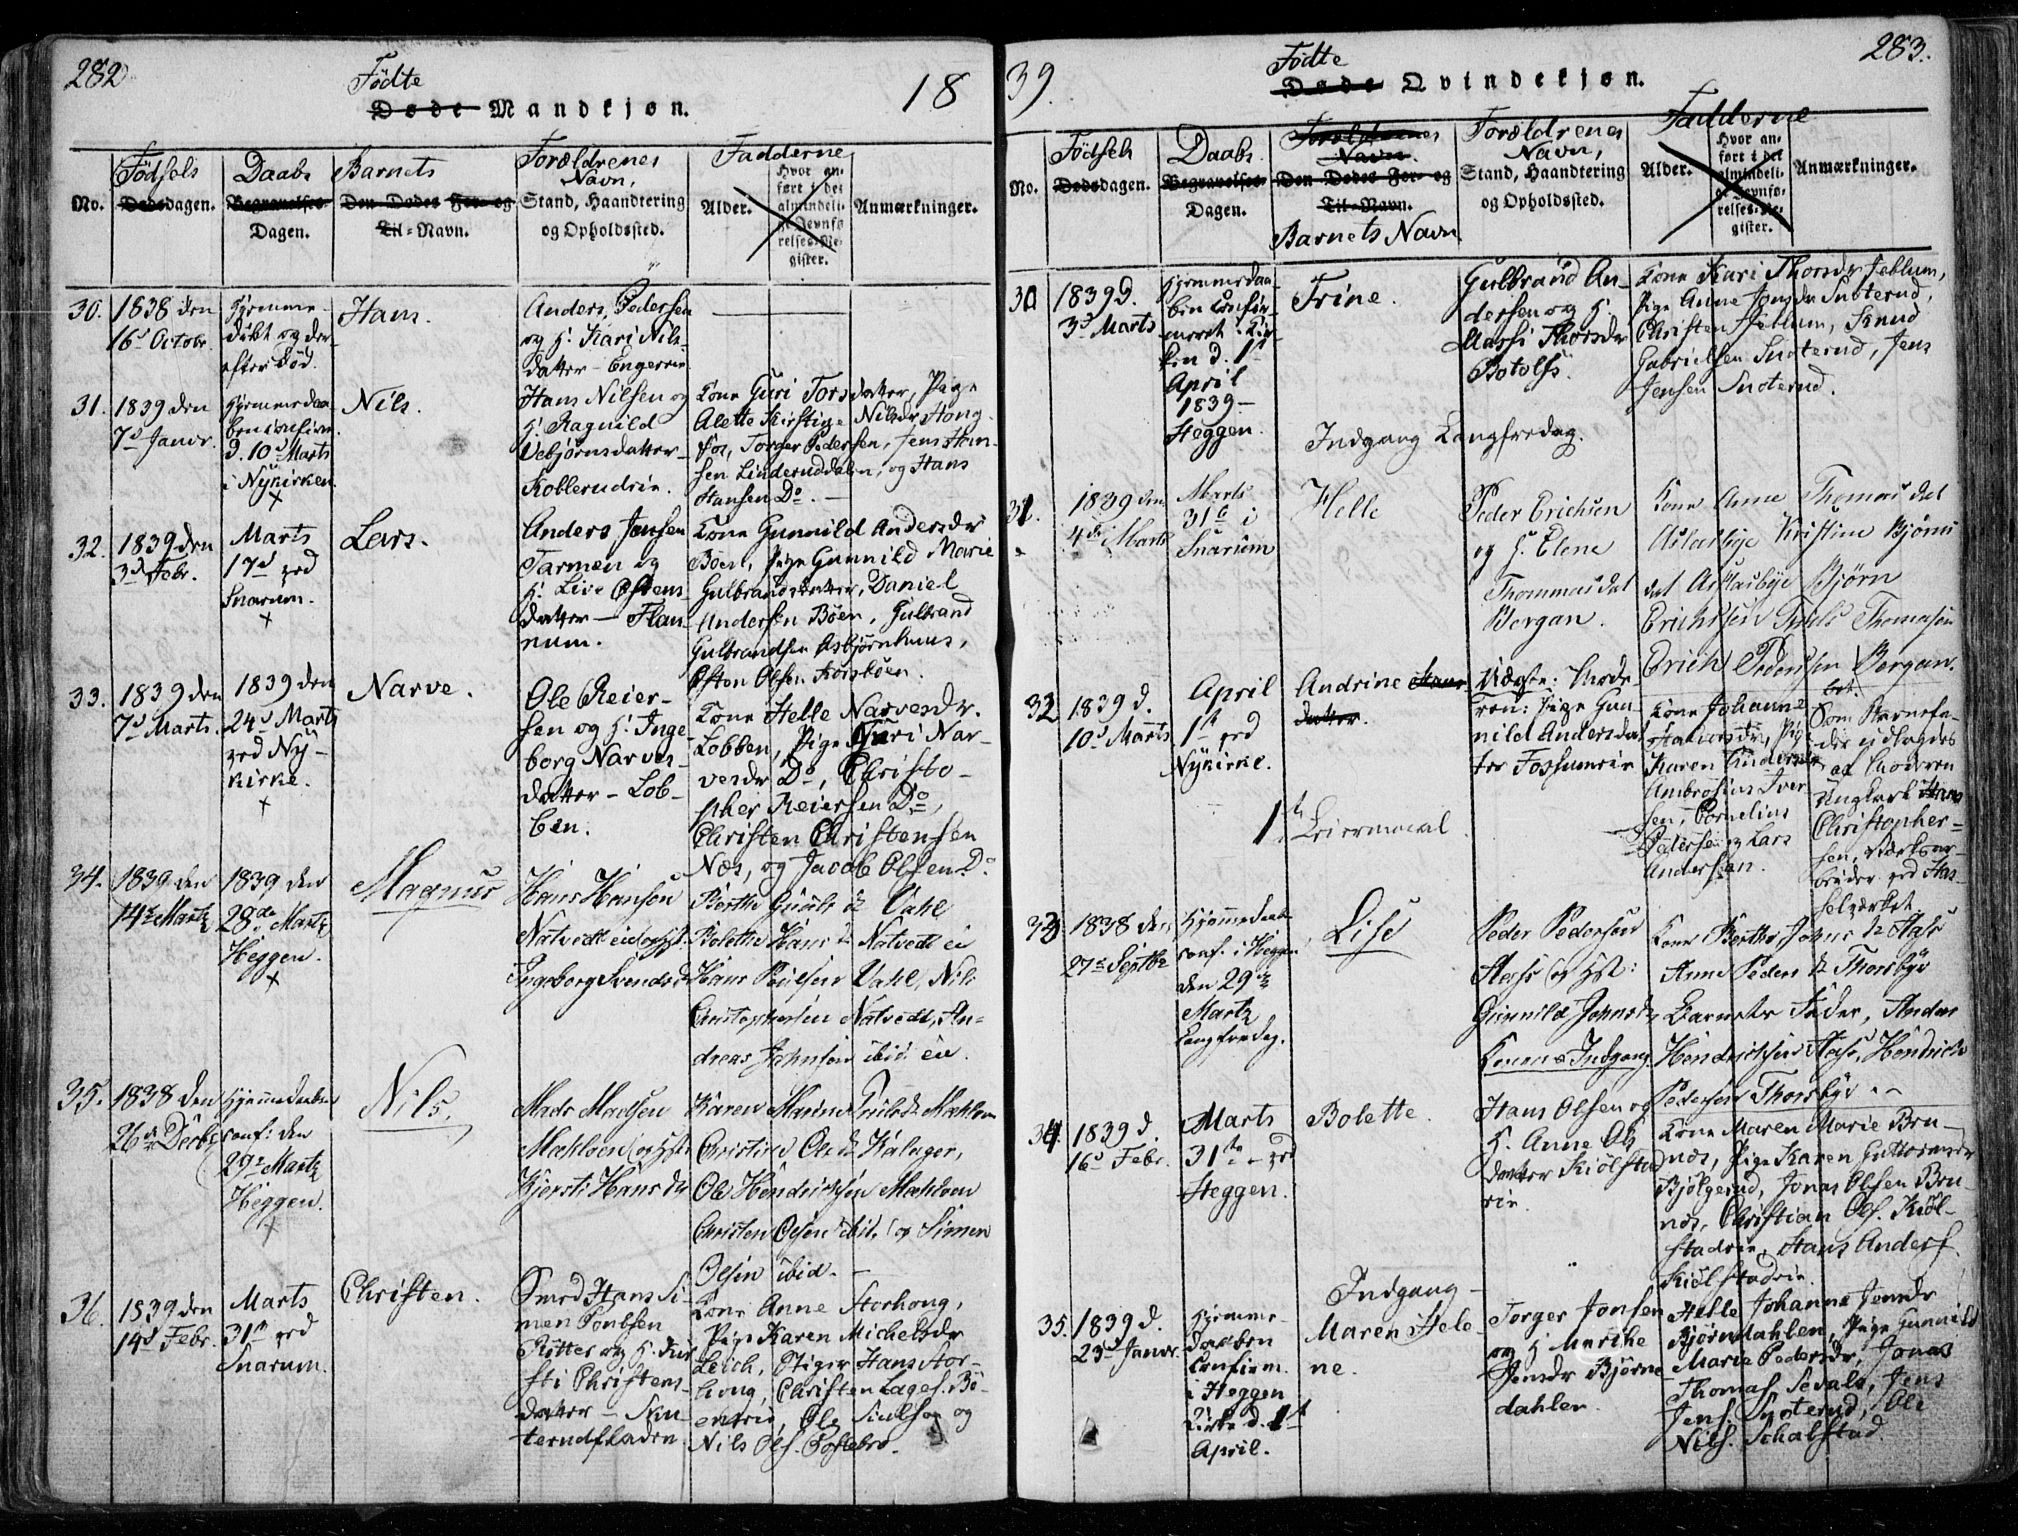 282
Födte
Døde Mandkjøn.
18
No.
Födsels
Dødsdagen.
Daabs
Begravelses-
Dagen.
Barnets
Den Dødes For- og
Til-Navn.
Forældrenes
Navn,
Stand, Haandtering
og Opholdssted.
Fadderne
Alder.
Hvor an-
ført i det
almindeli-
ge Jevnfø-
relses-Re-
gister.
Anmærkninger.
30.
1838 den
16d Octobr.
Hjemme-
døbt og der-
efter død.
Hans.
Anders Pedersen
og H. Kari Nils-
datter - Engerrie
31.
1839 den
7d Janur.
Hjemmedaa-
ben confirm.
d. 10d Marts
i Nykirken.
Nils.
Hans Nilsen og
H. Ragnild
Vebjørnsdatter
Koblerudrie.
Kone Guri Torsdatter, Pige
Alette Kirstine Nilsdr Hong-
fos, Torger Pedersen, Jens Han-
sen Linderuddalen, og Hans
Hansen Do. -
32.
1839 den
3d Febr.
Marts
17d ved
Snarum.
Lars.
Anders Jensen
Tarmen og
H. Live Østens-
datter - Flan-
num.
Kone Gunnild Andersdr
Böen, Pige Gunnild Marie
Gulbrandsdatter, Daniel
Andersen Böen, Gulbrand
Gulbrandsen Asbjørnhuus,
Østen Olsen Korsböen.
33.
1839 den
7d Marts.
1839 den
24d Marts
ved Ny-
kirke.
Narve.
Ole Reier-
sen og H. Inge-
borg Narves-
datter - Lob-
ben.
Kone Helle Narvesdr.
Lobben, Pige Guri Nar-
vesdr Do, Christo-
pher Reiersen Do,
Christen Christensen
Næs, og Jacob Olsen Do
34.
1839 den
14de Martz
1839 den
28de Martz
Heggen.
Magnus
Hans Hansen
Natvedt eie og Hst
Ingeborg Svendsdr
Berthe Dr Vahl
Bolette Hans Dr Natvedt ei
Hans Poulsen Vahl, Nils
Christophersen Natvedt, An-
dreas Jahnsen ibid. eie.
35.
1838 den
26de Decbr
Hjemmedaaben
conf: den
29de Martz
Heggen.
Nils.
Mads Madsen
Mæhlven og Hst
Kjersti Hans Dr
Karen Marine Dr Mæhlum
Christine Ole Dr Kalager,
Ole Hendrichsen Mæhlven
Christen Olsen ibid. og Simen
Olsen ibid. -
36.
1839 den
14d Febr.
Marts
31te ved
Snarum.
Christen.
Smed Hans Si-
men Poulsen
Ritter og H. Kir-
sti Christens-
datter - Snu-
terudfladen.
Kone Anne Storhong,
Pige Karen Michelsdr
Leich, Stiger Hans Stor-
hong, Christen Lages. Bö-
enerie, Ole og
Nils Ols. Postebro.
39.
283.
Födte
Døde Qvindekjøn.
No.
Födsels
Dødsdagen.
Daabs
Begravelses-
Dagen.
Forældrenes
Navn.
Den Dødes For- og
Til-Navn.
Barnets Navn
Forældrenes
Navn,
Stand, Haandtering
og Opholdssted.
Fadderne
Alder.
Hvor an-
ført i det
almindeli-
ge Jevnfø-
relses-Re-
gister.
Anmærkninger.
30
1839 d.
3d Marts
Hjemmedaa-
ben confir-
meret i Kir-
ken d. 1st
April
1839 -
Heggen.
Trine.
Gulbrand An-
dersen og H.
Massi Thorsdr
Botolfs.
Kone Kari Thorsdr Jeblum,
Pige Anne Jonsdr Snoterud,
Christen Jeblum, Knud
Gabrielsen Snoterud, Jens
Jensen Snoterud.
Indgang Langfredag.
31.
1839 den
4de Marts
Marts
31te i
Snarum
Helle
Peder Erichsen
og H. Elene
Thommasdat
Bergan.
Kone Anne Thomas dat
Aslaxbye Kirstine Bjørns
dat Aslaxbye Bjørn
Erichsen Thomasen
Erich Pedersen Bergan.
32
1839 d.
10d Marts
April
1st ved
Nykirke.
Andrine Hans-
datter.
Uægte: Mode-
ren: Pige Gun-
nild Andersdat-
ter Fossumeie
Kone Johanne
Hansdr, Pige
Karen Andersdr
Ambrosius Iver-
sen, Cornelius
Pedersen og Lars
Andersen.
Som Barnefa-
der udlagdes
af Moderen
Ungkarl Hans
Christopher-
sen, værksar-
beider ved Has-
selværket.
1ste Leiermaal.
33
1838 den
27de Septbr
Hjemmedaab
conf. i Heggen
den 29de
Martz
Langfredag.
Lise
Peder Pedersen
Aass og Hst:
Gunnild Johnsdr
Konens Indgang
Kone Berthe Johns Dr Aass
Anne Peders Dr Thorsbye
Barnets Fader, Anders
Hendrichsen Aass, Hendrich
Pedersen Thorsbye
34.
1839 d.
16d Febr.
Marts
31te - ved
Heggen.
Bolette.
Hans Olsen og
H. Anne Ols-
datter Kiölstad-
rie.
Kone Maren Marie Bru-
næs, Pige Karen Guttormsdr
Bjölgerud, Jonas Olsen Bru-
næs, Christian Ols. Kiöl-
stadrie, Hans Anders.
Kiölstadrie.
Indgang -
35.
1839 d.
23d Janur.
Hjemme-
daaben
confirm.
i Heggen
Kirke d. 1st
April.
Maren Hele-
ne.
Torger Jonsen
og H. Marthe
Jensdr Bjørne-
dahlen.
Helle Johanne Jensdr
Bjørndahlen, Pige Gunnild
Marie Pedersdr, Jonas
Thomas. Jens
Jens. Snoterud, Ole
Nils. Schalstad.